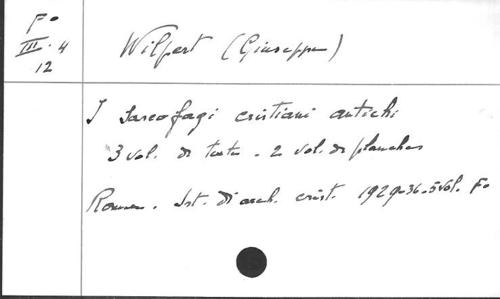 F°
III. 4
12
Wilpert (Giuseppe)
I Sarcofagi cristiani antichi
3 vol. di testo - 2 vol. di planches
Rome. Ist. di arch. crist. 1929-36. 5 vol. F°